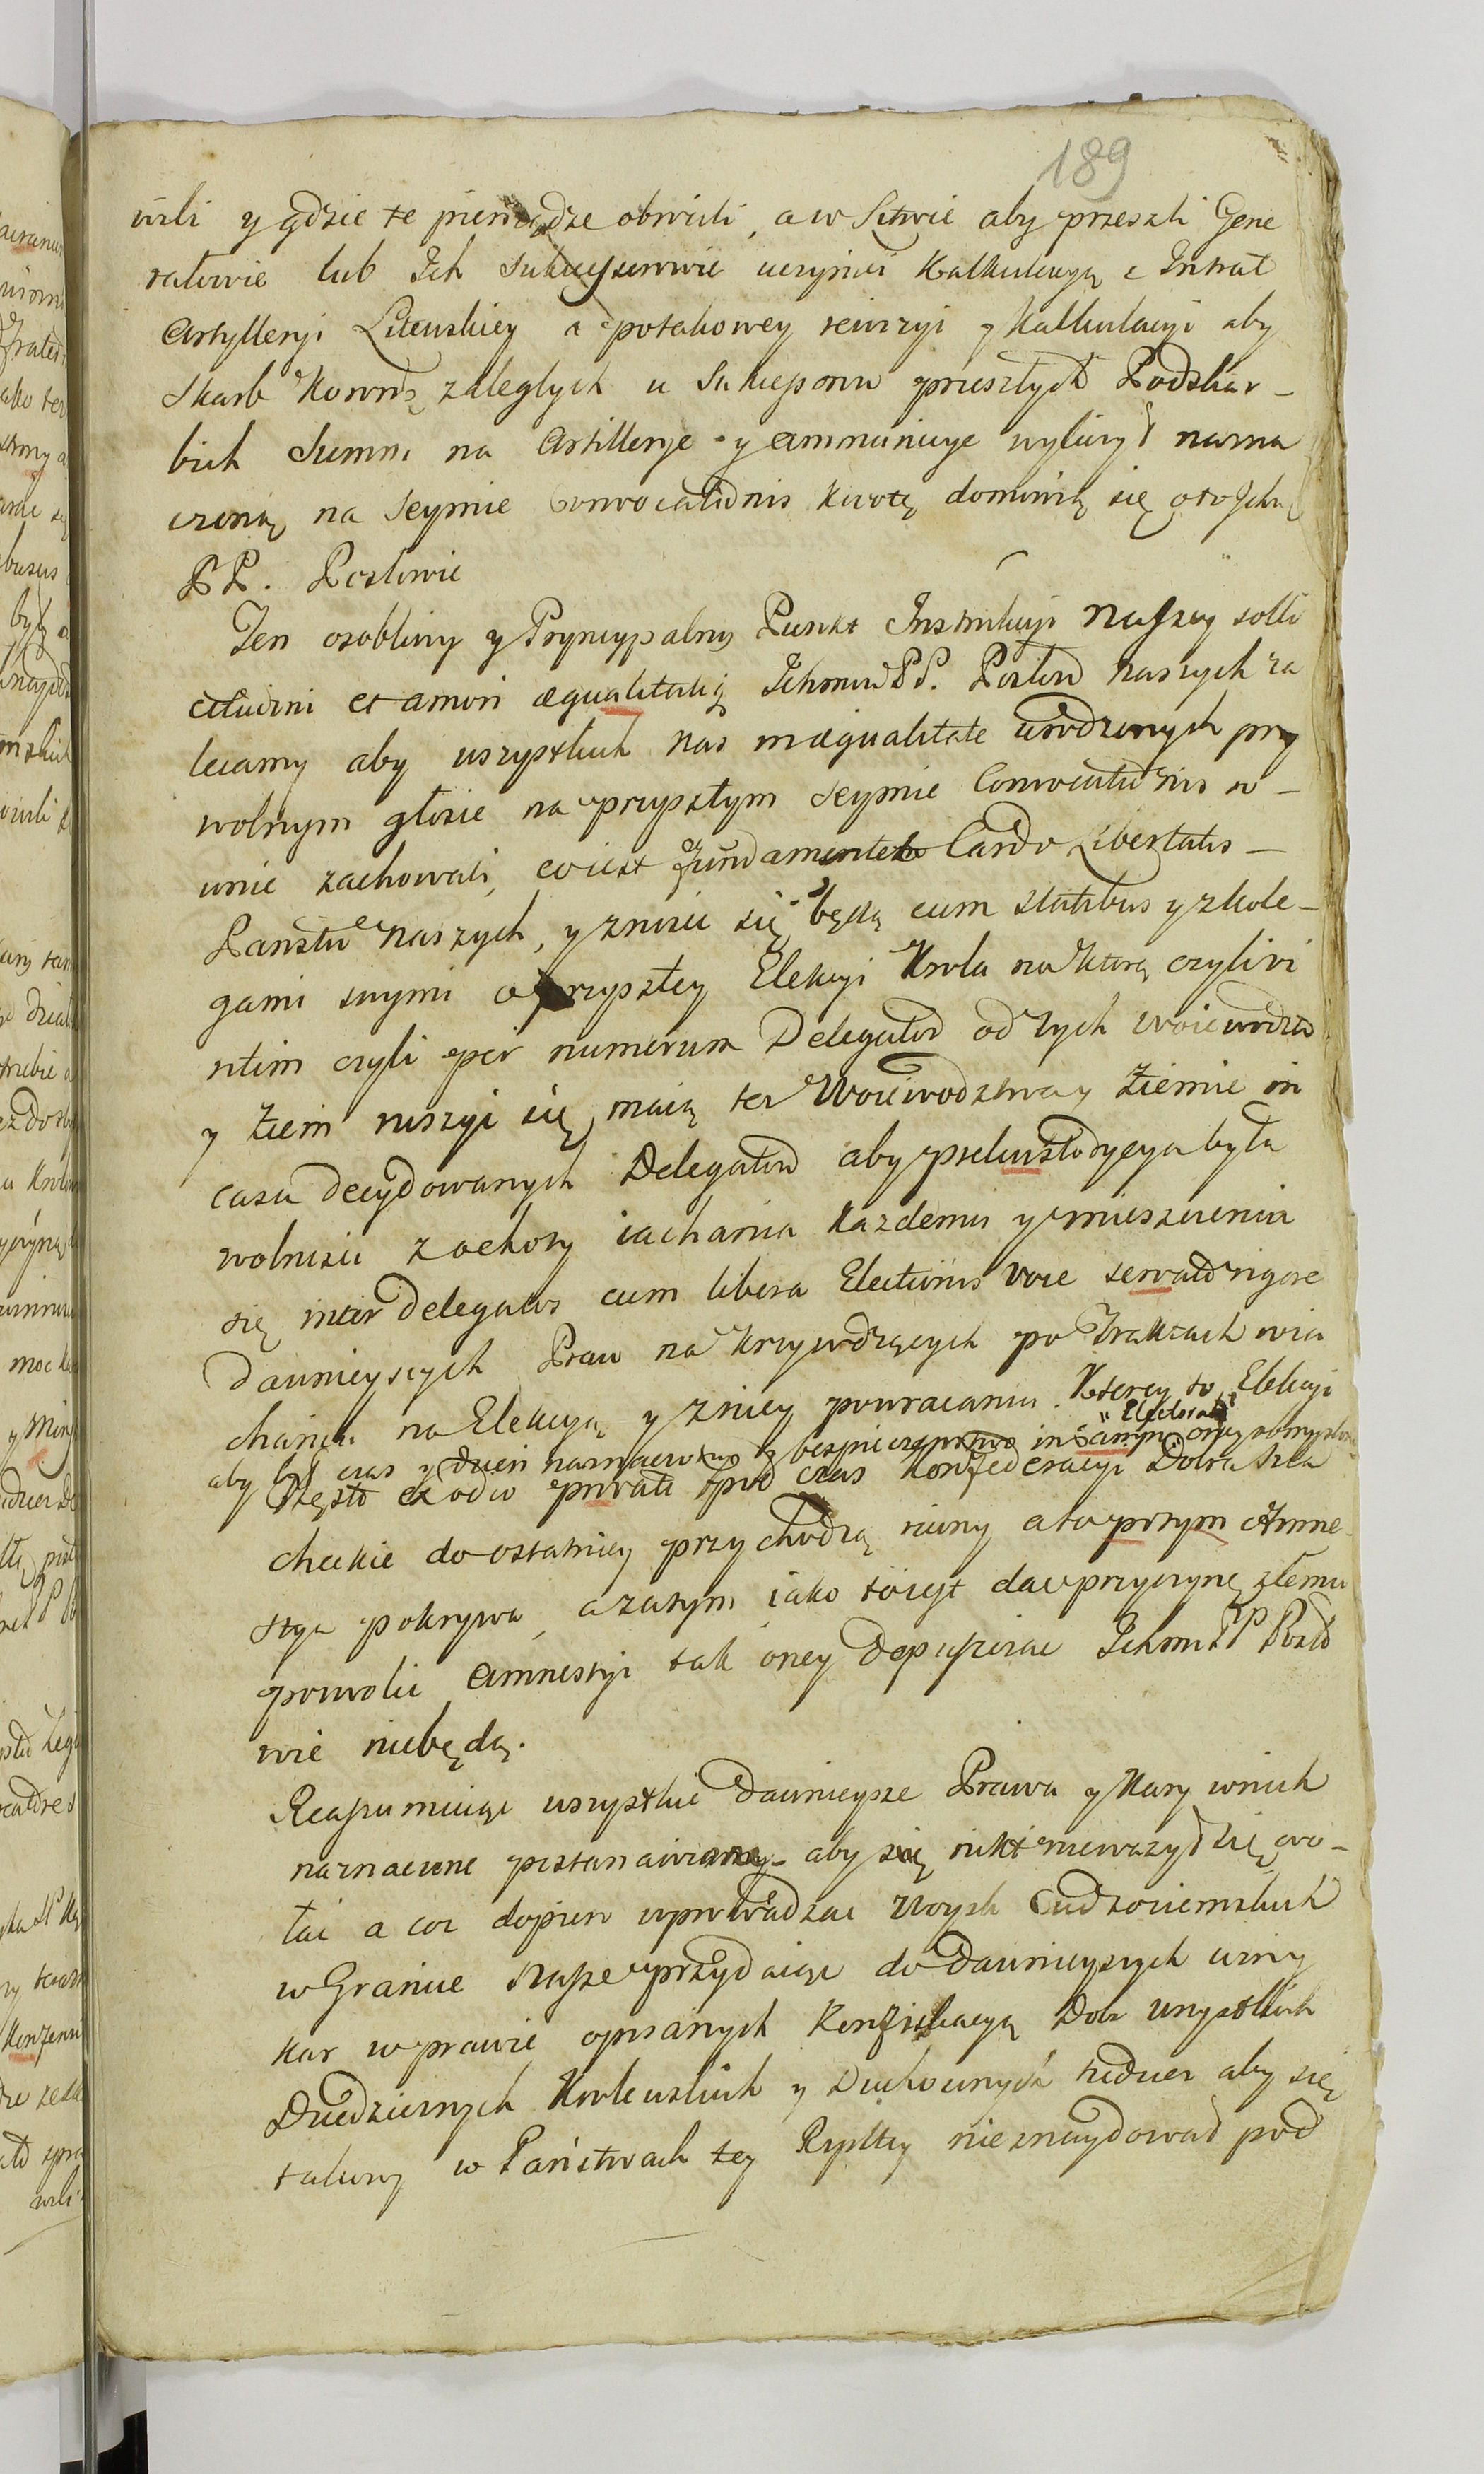 189
wili y gdzie te pieniądze obrucili, a w Litwie aby przeszli Gene
rałowie lub Ich Sukcessorowie uczynili Kalkulacyą z Intrat
Artylleryi Litewskiey a po takowey rewizyi y Kalkulacyi aby
Skarb Koronny zaległych u Sukcessorow przeszłych Podskar-
bich Summ na Artillerye y ammunicye wyliczył nazna
czoną na Seymie Convocationis kwotę, domowią się o to Ichm
PP. Posłowie
Ten osobliwy y Pryncypalny Punkt Instrukcyi Naszey solli
citudini et amori æqualitatis Ichmciow PP. Posłow naszych za
lecamy aby wszystkich nas in æqualitate urodzonych przy
wolnym głosie na przyszłym Seymie Convocationis
zachowali, co iest fundamentem Cardo Libertatis -
Państw Naszych, y znosić się będą cum statibus y z kole-
gami swymi o przyszłey Elekcyi Krola na ktorą czyli vi
ritim czyli per numerum Delegatow od tych woiewodztw
y Ziem ruszyć się maią te Woiewodztwa y Ziemie in
casu decydowanych Delegatow aby była
wolność z ochoty iachania każdemu y umieszczenia
się inter Delegatos cum libera Electionis voce servato rigore
dawnieyszych Praw na krzywdzących po Traktach wia
chaniu na Elekcyą y z niey powracaniu. Ktorey to Elekcyi
aby był czas y dzień naznaczony y bespieczeństwo in campo "Electorali" oney obmyślone
Często ex odio privati pod czas Konfederacyi Dobra szla
checkie do ostatniey przychodzą ruiny a to potym Amne-
stya pokrywa, a zatym iako to iest dac przyczynę złemu
pozwolic Amnestyi tak oney dopuszczac Ichm PP Posło
wie niebędą.
Reassumuiąc wszystkie dawnieysze Prawa y Kary w nich
naznaczone postanawiamy aby się nikt nieważył się wo-
łać a coz dopiero wprowadzac Woysk Cudzoziemskich
w Granice Nasze przydaiąc do dawnieyszych winy
kar w prawie opisanych Konfiskacyą Dobr wszystkich
Dziedzicznych Krolewskich y Duchownych tudziez aby się
takowy w Państwach tey Rzpltey nieznaydował pod